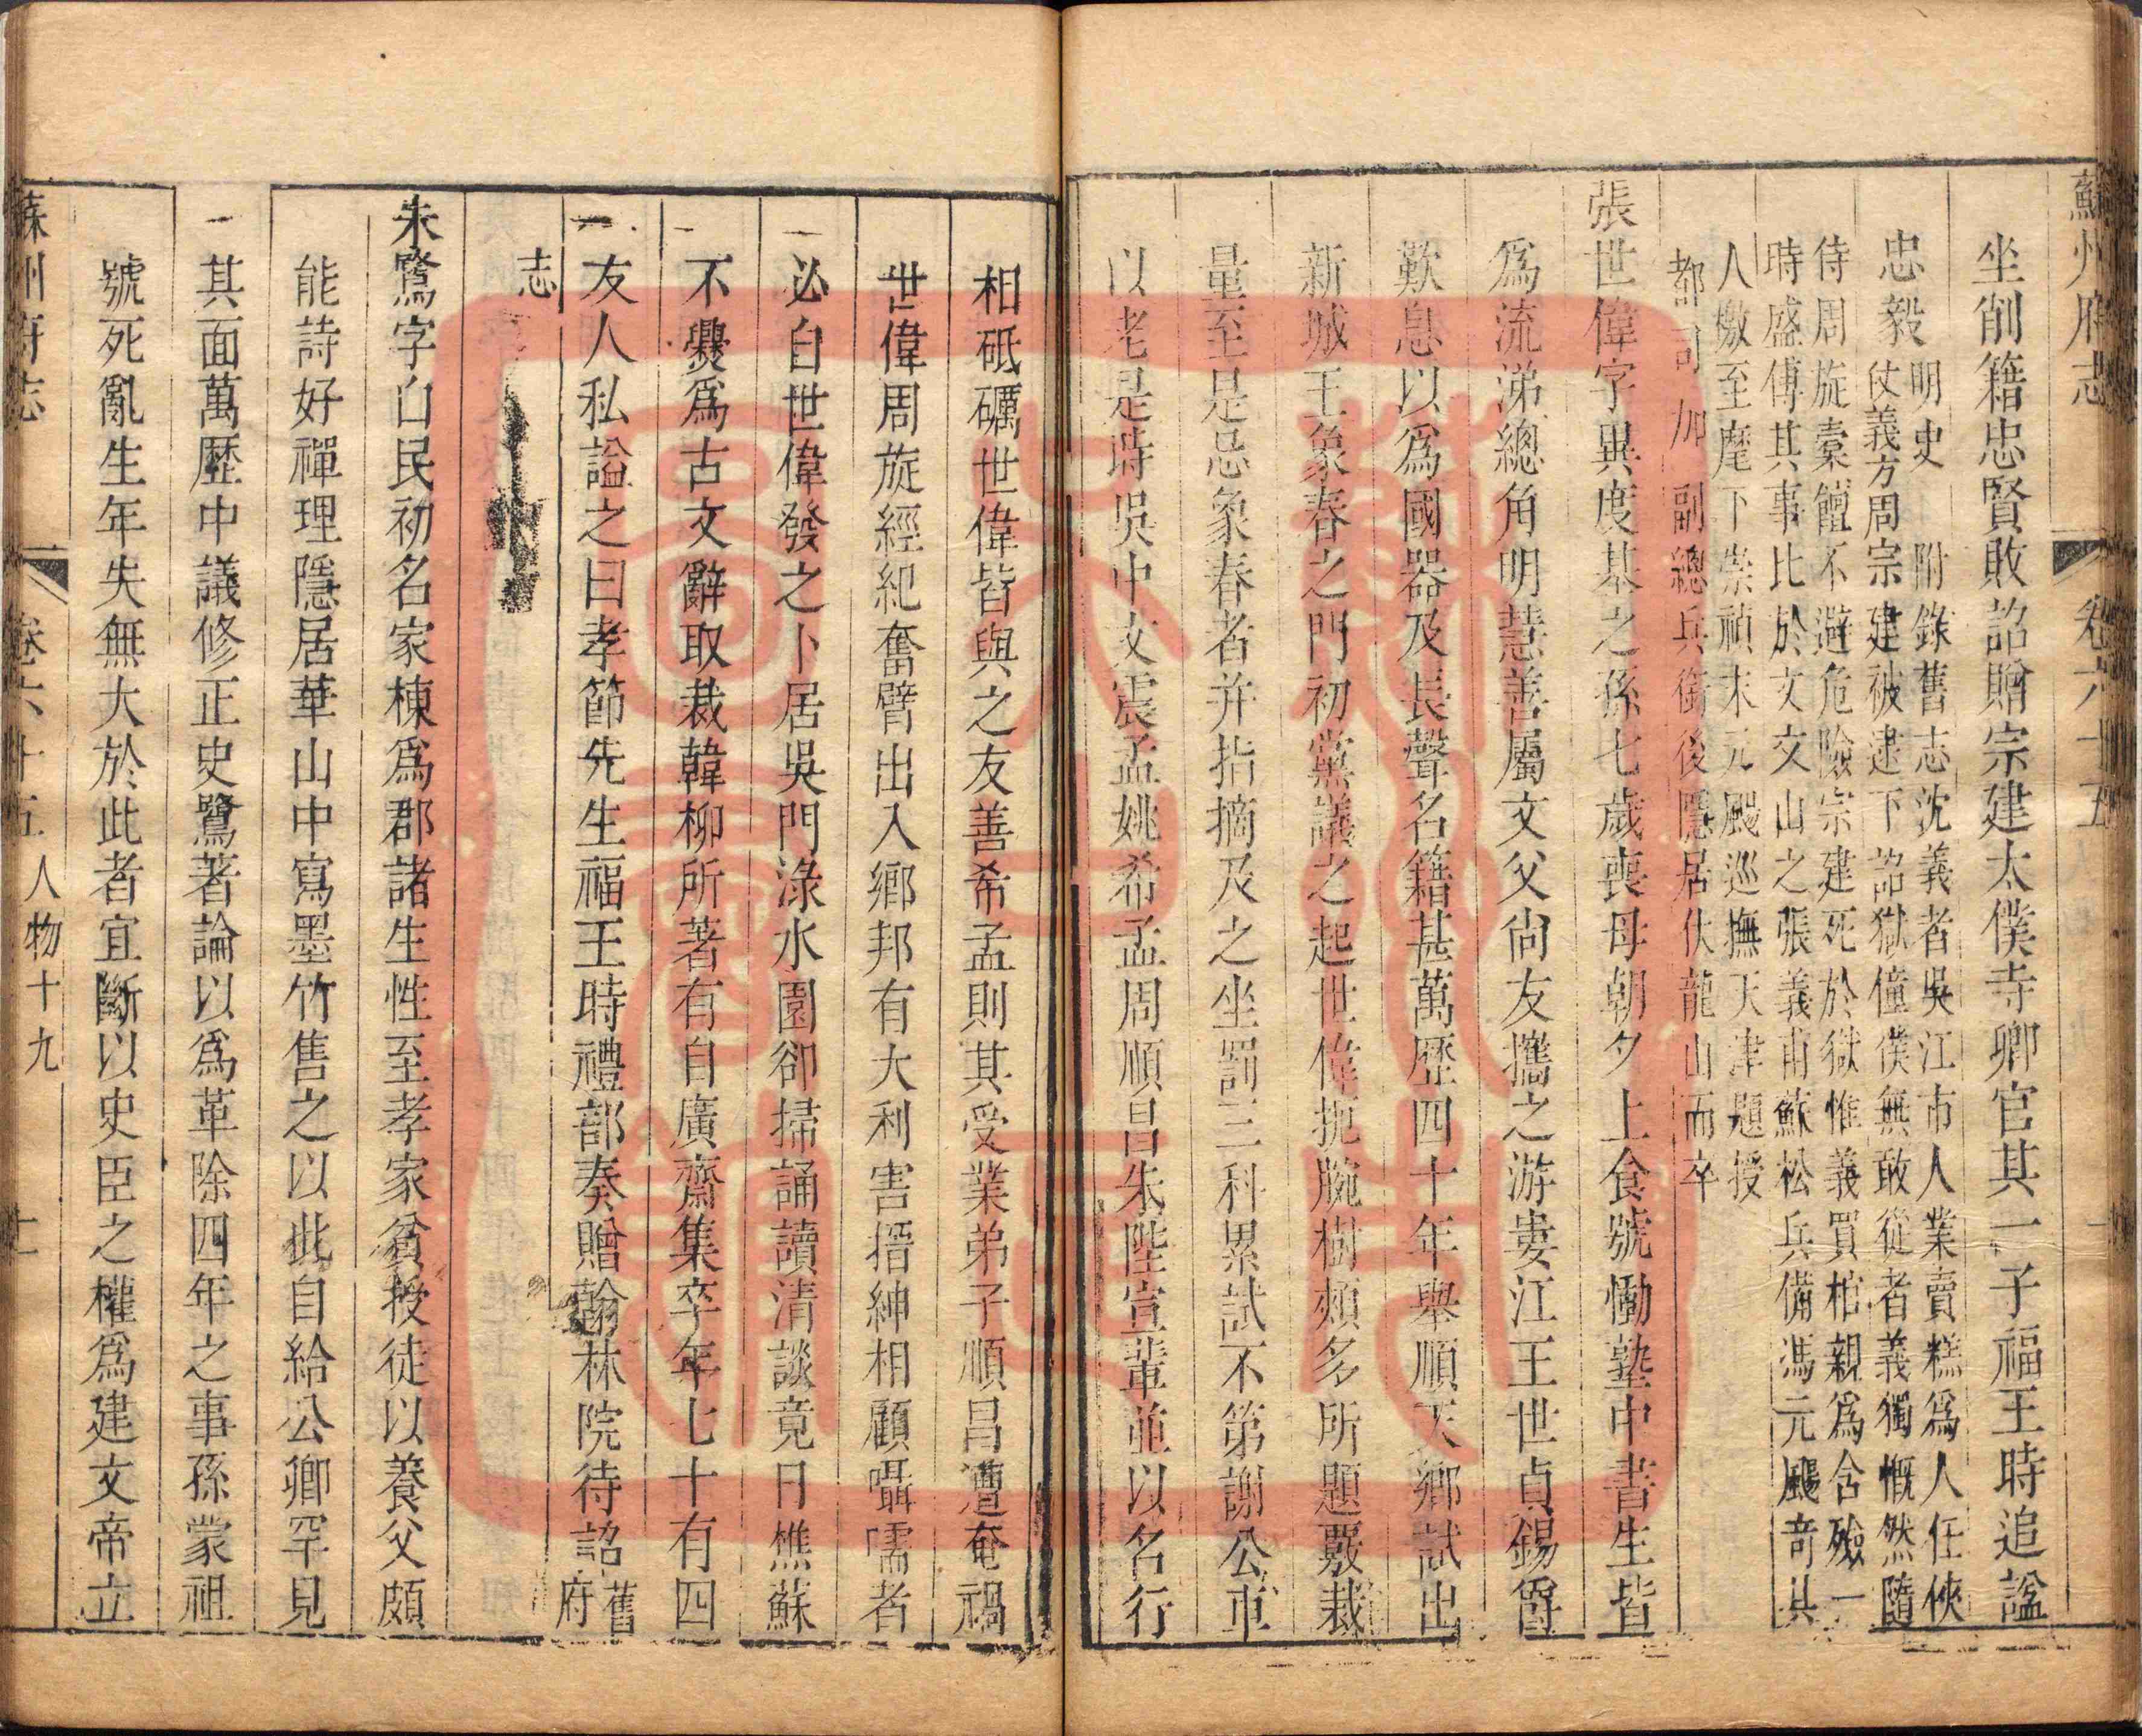 蘇州府志 卷六十五
坐削籍忠賢敗詔贈宗建太僕寺卿官其一子福王時追諡
忠毅
明史 附錄舊志沈義者吳江市人業賣糕爲人任俠
仗義方周宗建被逮下詔獄僮僕無敢從者義獨慨然隨
侍周旋橐饘不避危險宗建死於獄惟義買棺親爲含殮一
時盛傳其事比於文文山之張義甫蘇松兵備馮元颺奇其
人檄至麾下崇禎末元颺巡撫天津題授
都司加副總兵銜後隱居伏龍山而卒
張世偉字異度基之孫七歲喪母朝夕上食號慟塾中書生皆
爲流涕總角明慧善屬文父尙友攜之游婁江王世貞錫爵
歎息以爲國器及長聲名籍甚萬歷四十年舉順天鄉試出
新城王象春之門初黨議之起世偉扼腕樹頰多所題覈裁
量至是忌象春者并指摘及之坐罰三科累試不第謝公車
以老是時吳中文震孟姚希孟周順昌朱陛宣輩並以名行
相砥礪世偉皆與之友善希孟則其受業弟子順昌遭奄禍
世偉周旋經紀奮臂出入鄉邦有大利害搢紳相顧囁嚅者
必自世偉發之卜居吳門淥水園卻掃誦讀清談竟日樵蘇
不爨爲古文辭取裁韓柳所著有自廣齋集卒年七十有四
友人私諡之曰孝節先生福王時禮部奏贈翰林院待詔 舊府
志
朱鷺字白民初名家棟爲郡諸生性至孝家貧授徒以養父頗
能詩好禪理隱居華山中寫墨竹售之以此自給公卿罕見
其面萬歷中議修正史鷺著論以爲革除四年之事孫蒙祖
號死亂生年失無大於此者宜斷以史臣之權爲建文帝立
蘇州府志 卷六十五 人物十九